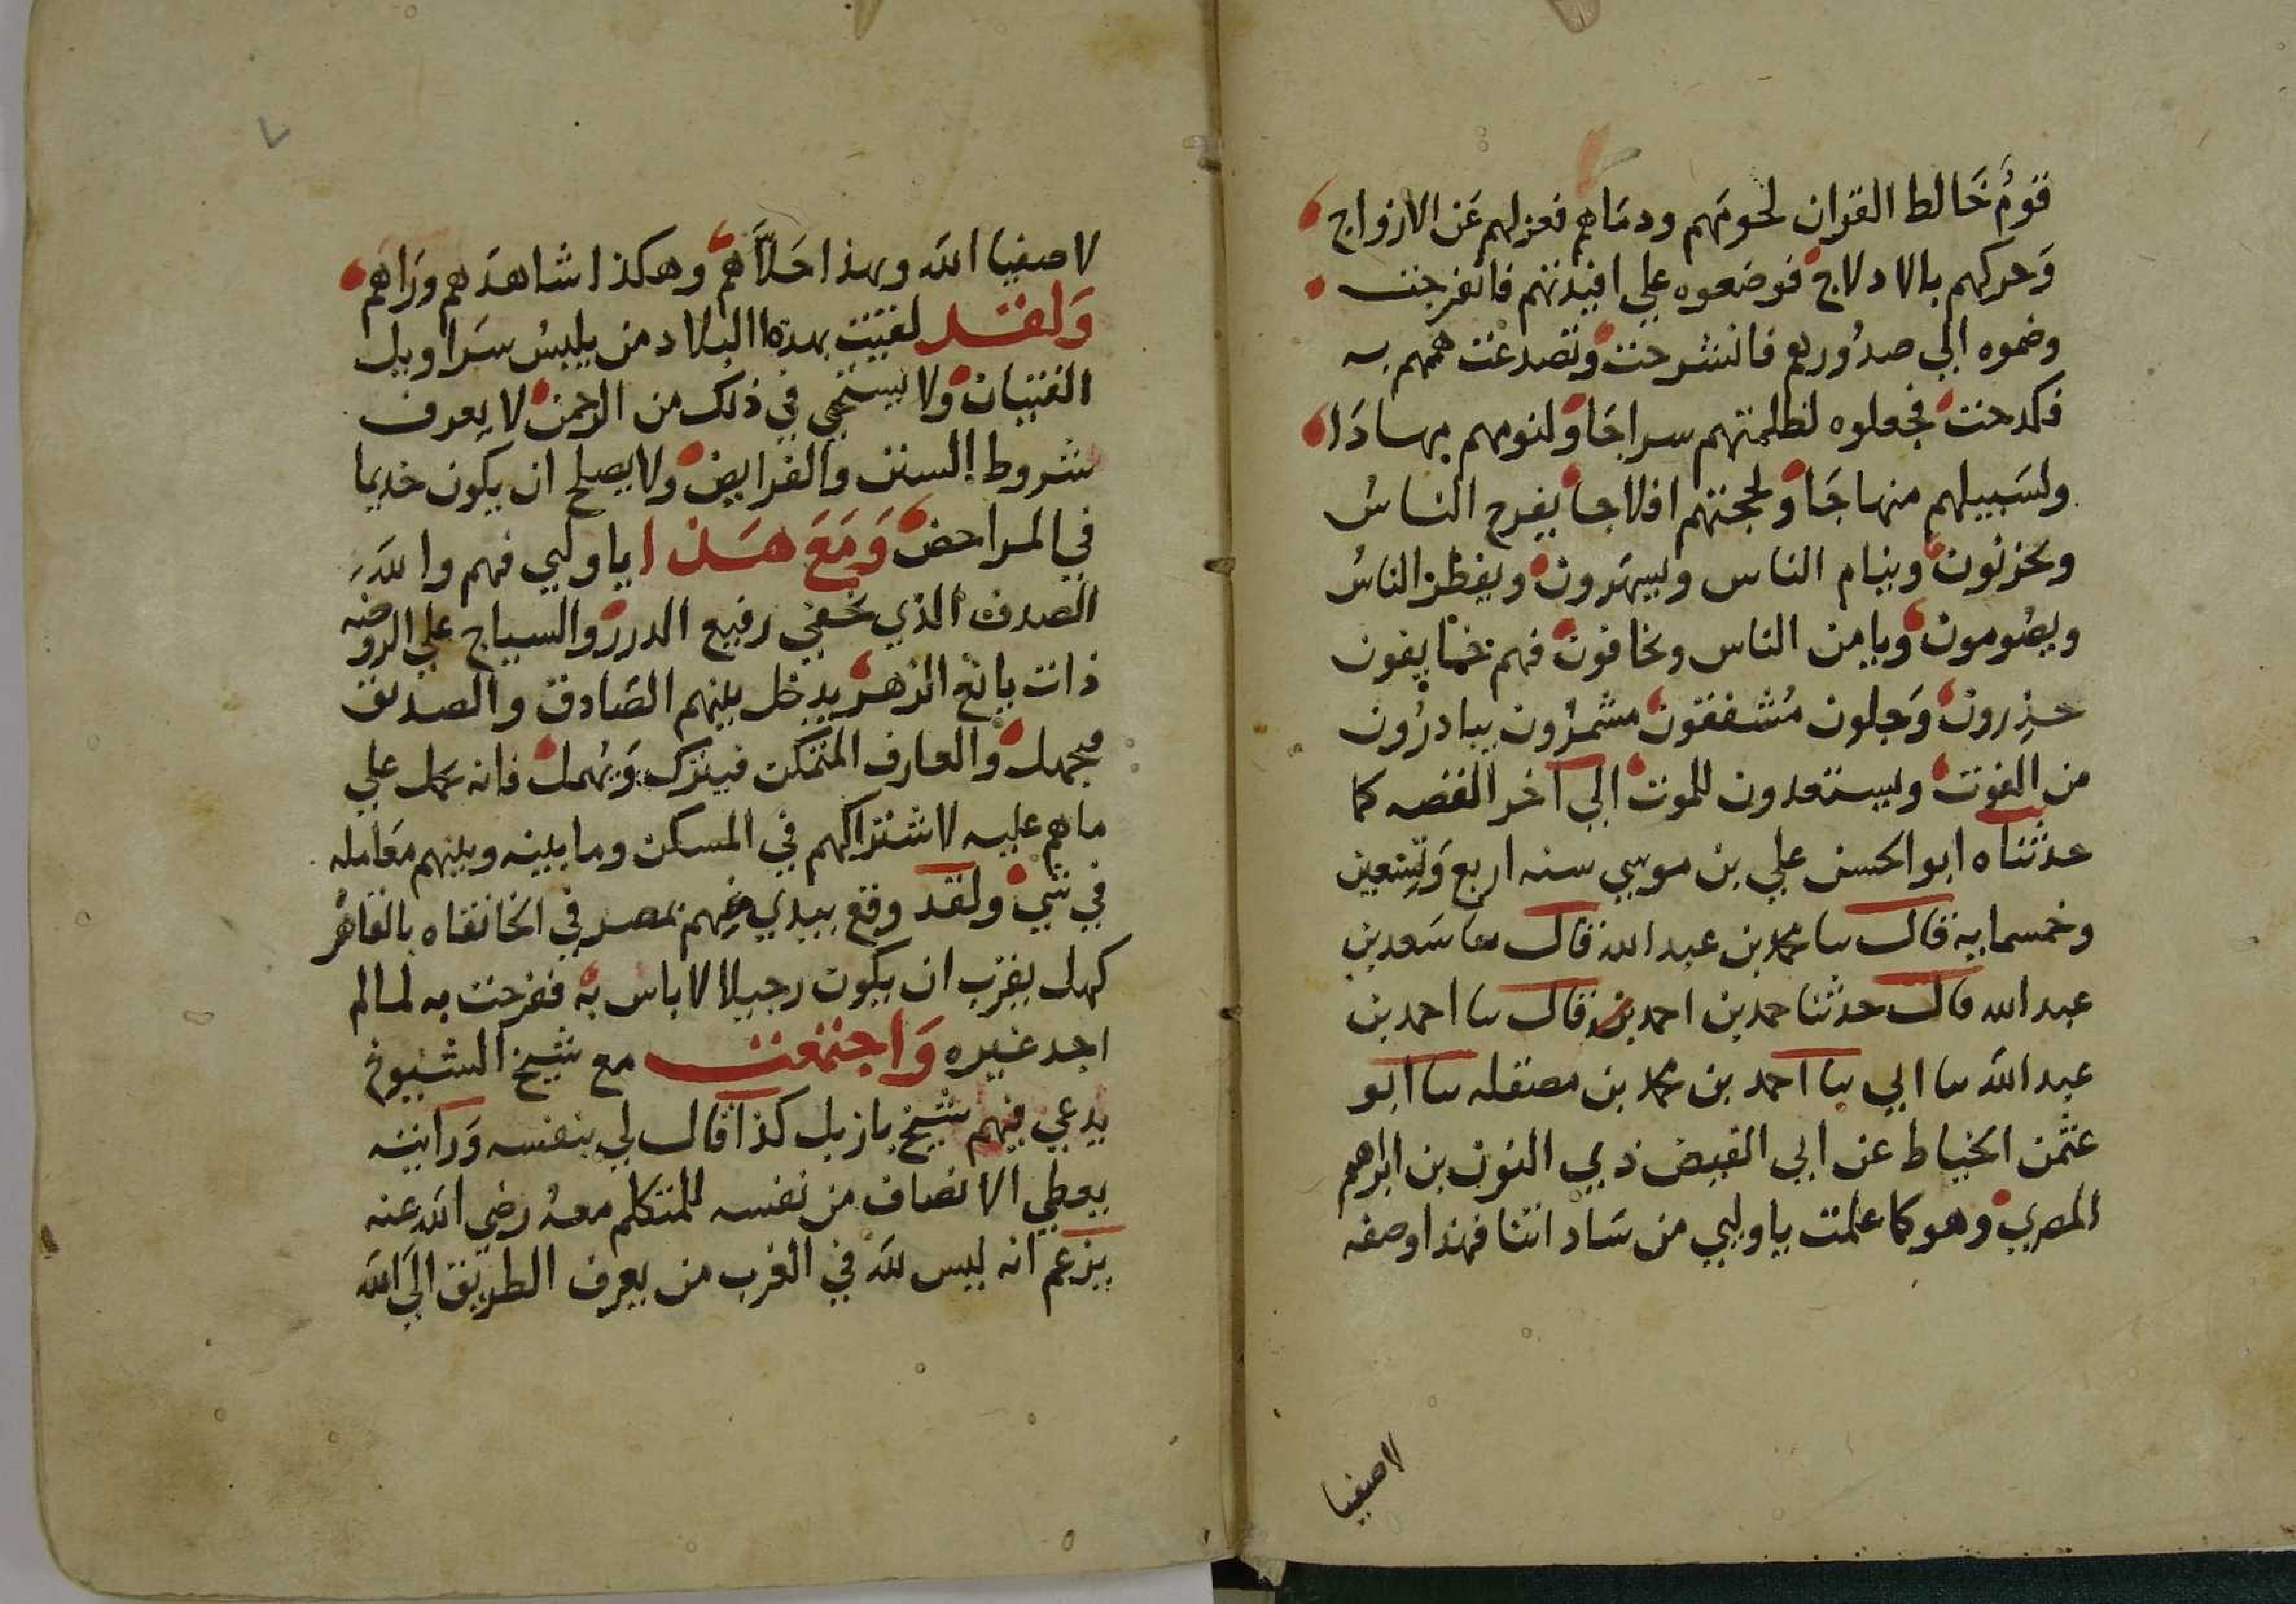 قومٌ خَالط القران لحومَهم ودمَاهم فعزلهم عَن الازواج
وَحركهم بالادلاج فوضعوه علي افيدتهم فانفرجت
وضموه الي صدُورهم فانشرحت وتصدعت هممهم به
فكدحت فجعلوه لظلمتهم سراجَا ولنومهم مهادَا
ولسَبيلهم منهاجَا ولحجتهم افلاجا يفرح الناسُ
ويحزنون وينام الناس ويسهَرون ويفطر الناسُ
ويصُومون ويامن الناس ويخافون فهم خايفون
حذِرون وَجلون مُشفقون مشمرُون يبادرُون
من الفوت ويستعدون للموت الي آخر القصه كما
حدثناه ابو الحسن علي بن موسي سنه اربع وَتسِعين
وخمسمايه قال سا محمد بن عبد الله قال سا سَعد بن
عبد الله قال حدثنا حمد بن احمد قال سا احمد بن
عبد اللّه سا ابي سا احمد بن محمد بن مصقله سا ابو
عثمن الخياط عن ابي الفيض ذي النون بن ابراهيم
المصري وهو كما علمت يا وليي من سَاداتنا فهذا وصفه
لاصفيا
لاصفيا اللّه وبهذا حَلاَّهم وهكذا شاهدَهم ورَاهم
وَلقد لقيت بهذه البلاد من يلبسُ سَراويل
الفتيان ولا يستحي في ذلك من الرحمن لا يعرف
شروط السنن والفرايض ولا يصلح ان يكون خديما
في المراحض وَمَعَ هَذا يا وليي فهم واللّهَ
الصدف الذي يخفي رفيع الدرر والسياج علي الروضه
ذات يانع الزهر يدخل بينهم الصَادق والصديق
فيجهل والعارف المتمكن فيترك وَيُهمل فانه يحمل علي
ما هم عليه لاشتراكهم في المسكن وما بينه وبينهم معَامله
في شي ولقد وقع بيدي منهم بمصر في الخانقاه بالقاهره
كهل يقرب ان يكون رجيلا لا باس به ففرحت به لما لم
اجد غيره وَاجتمعت مع شيخ الشيوخ
يدعي فيهم شيخ يازيل كذا قال لي بنفسه وَرايته
يعطي الانصاف من نفسه للمتكلم معهُ رضي اللّه عنه
يزعم انه ليس للّه في الغرب من يعرف الطريق الَي اللّه